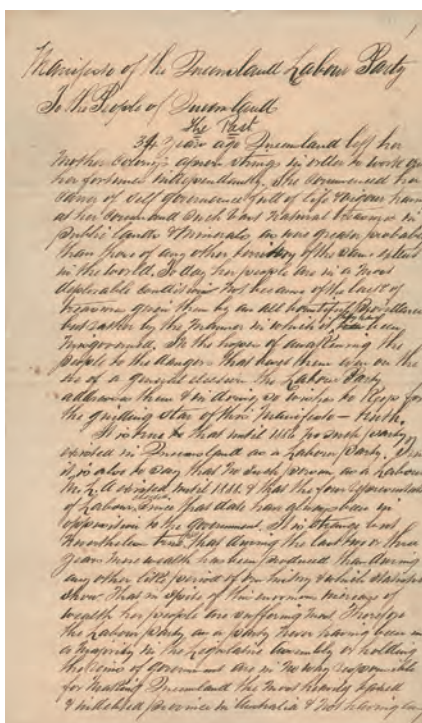 Manifesto of the Queensland Labour Party
To the People of Queensland
The Past
34 years ago Queensland left her
Mother Colony's apron strings in order to work out
her fortunes independently. She commenced her
career of self governance full of life & vigour having
at her command such vast Natural treasures in
public lands & Minerals as were greater probably
than those of any other territory of the same extent
in the world. To day her people are in a most
deplorable condition not because of the lack of
treasure given them by an all bountiful Providence
but rather by the manner in which they have been
misgoverned. In the hopes of awakening the
people to the dangers that beset them now on the
eve of a general election the Labour Party
address them & in doing so wishes to keep for
the guiding star of their Manifesto — truth.
It is true that until 1886 no such party
existed in Queensland as a Labour party. True
it is also to say that no such person as a Labour
M.L.A existed until 1888. & that the four Representatives
of Labour since that date have always been in
opposition to the government. It is strange but
Nevertheless true that during the last two or three
years more wealth has been produced than during
any other little period of our history & which statistics
show that in spite of this enormous increase of
wealth her people are suffering most. Therefore
the Labour party as a party never having been in
a Majority in the Legislative Assembly or holding
the reins of government are in no way responsible
for making Queensland the most heavily taxed
& indebted province in Australia & not having any